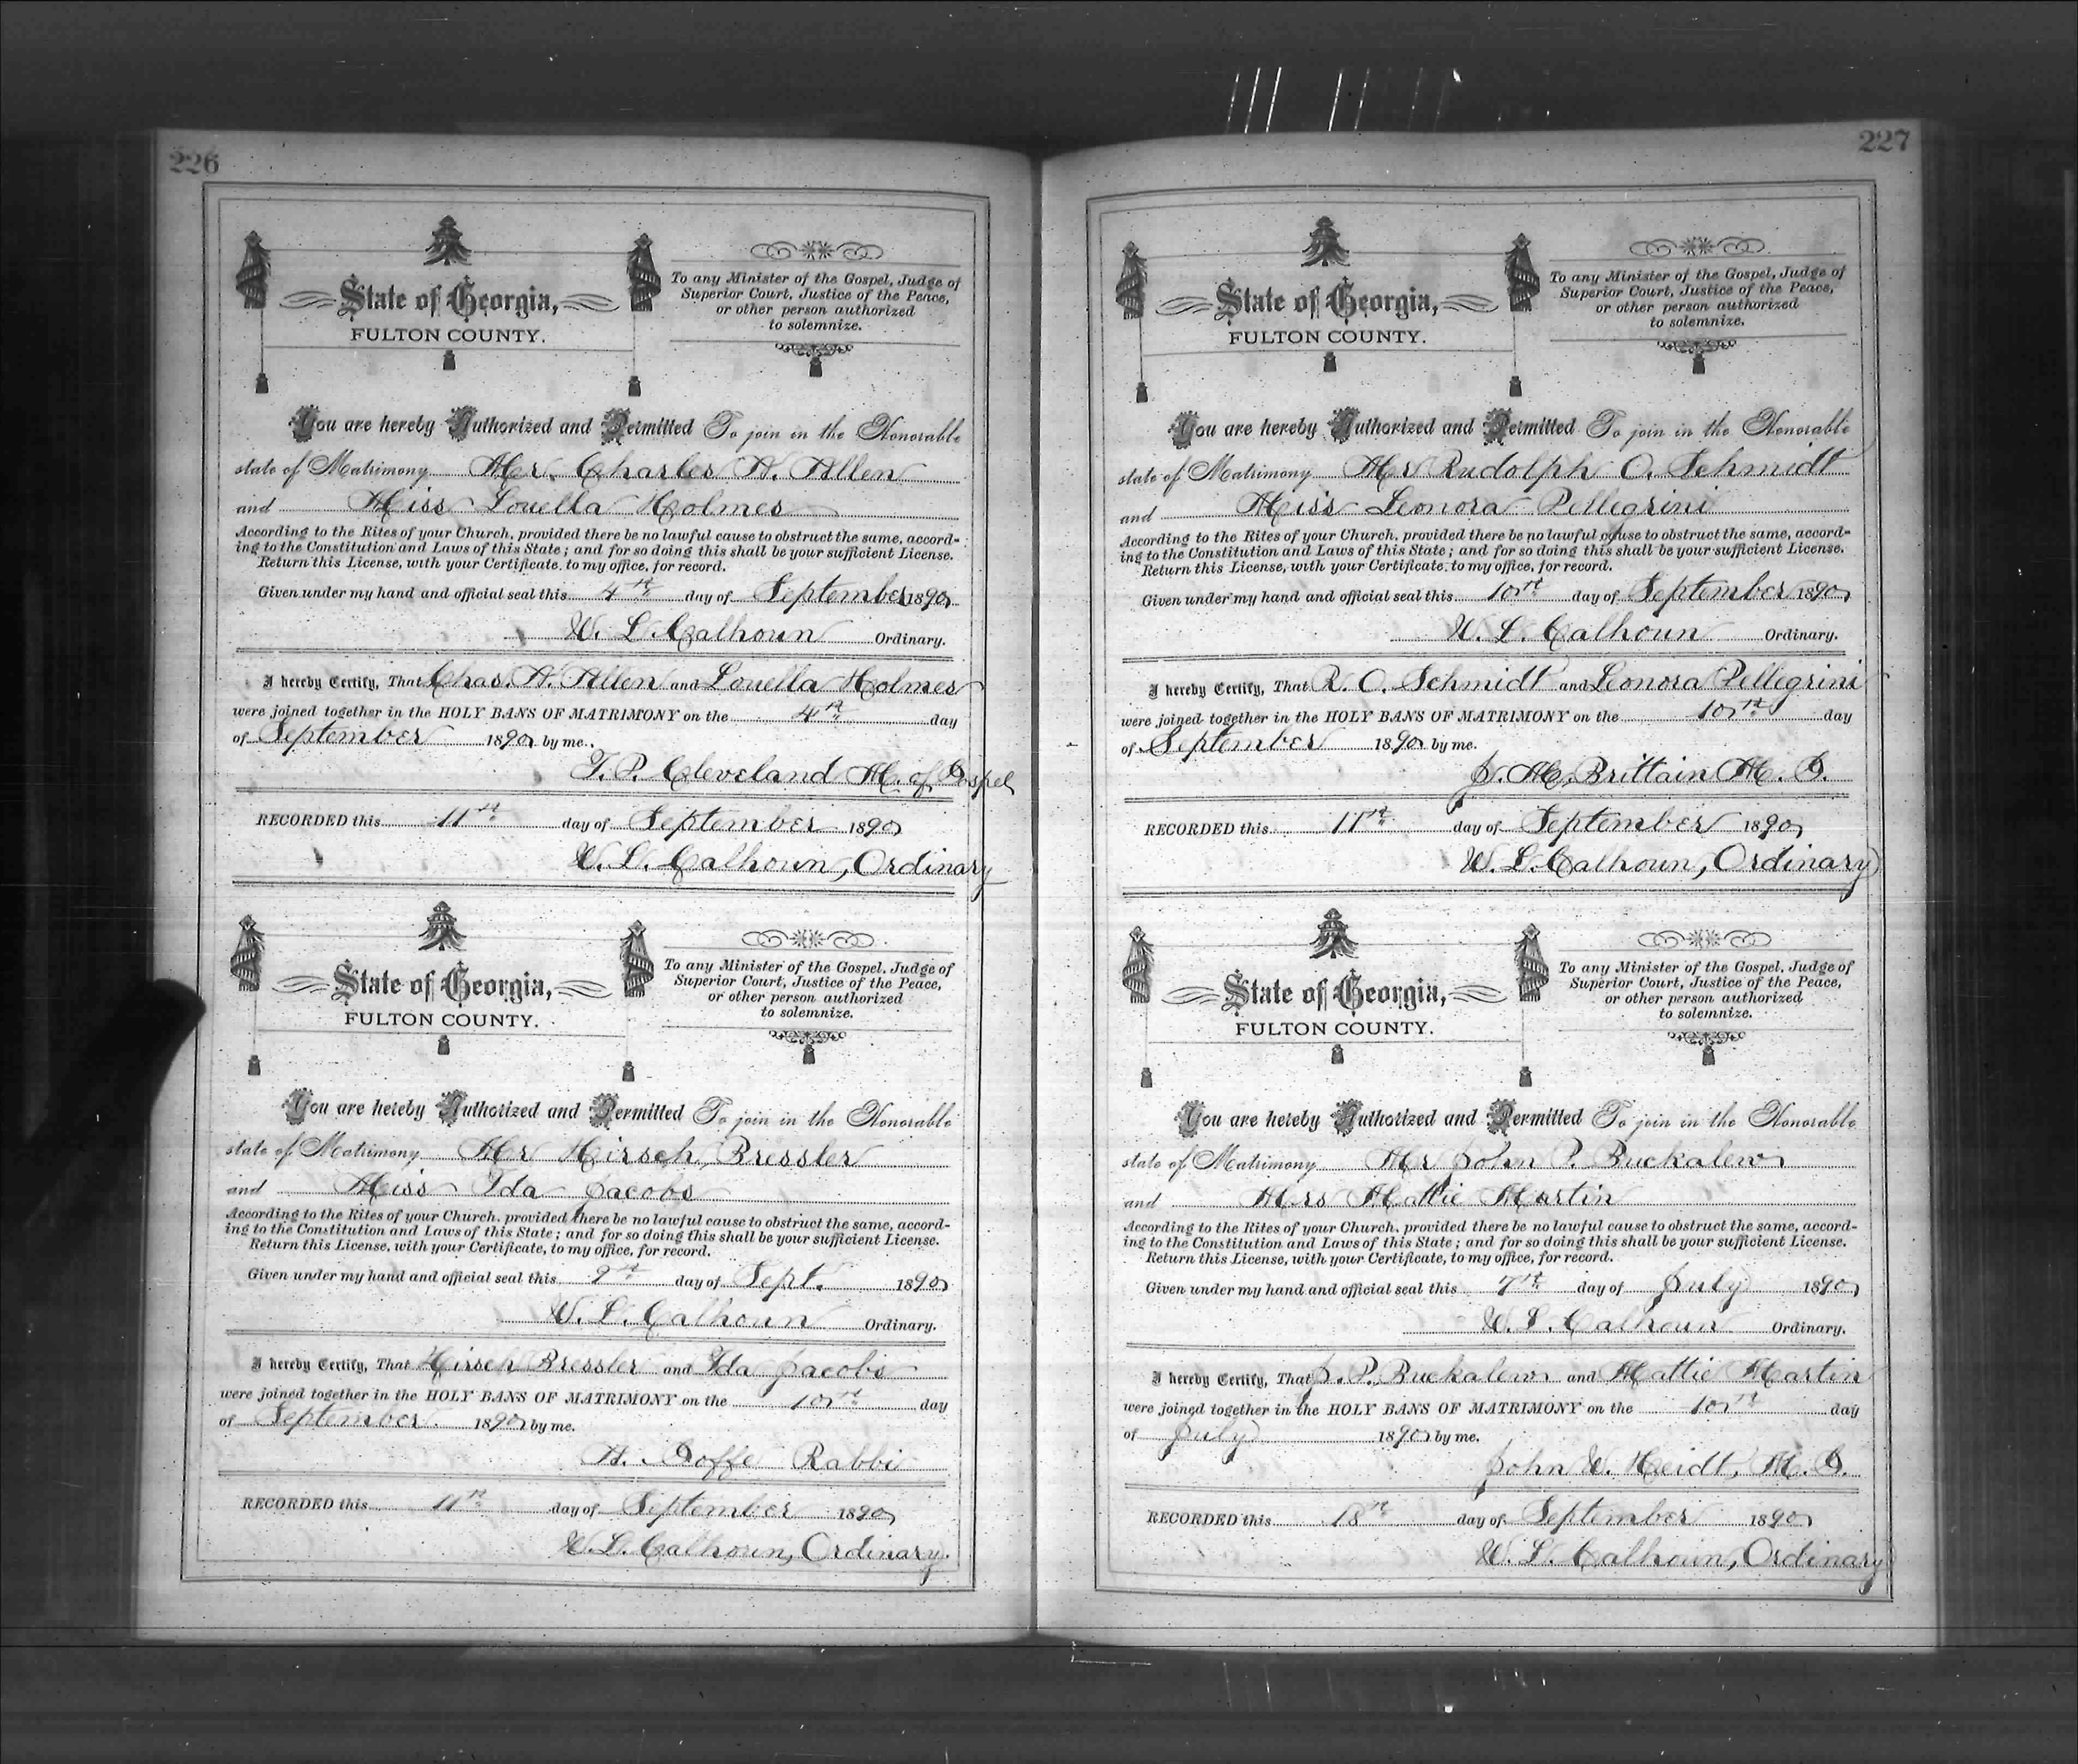 226
State of Georgia,
FULTON COUNTY.
To any Minister of the Gospel, Judge of
Superior Court, Justice of the Peace,
or other person authorized
to solemnize.
You are hereby Authorized and Permitted To join in the Honorable
state of Matrimony Mr. Charles A. Allen
and Miss Louella Holmes
According to the Rites of your Church, provided there be no lawful cause to obstruct the same, accord-
ing to the Constitution and Laws of this State; and for so doing this shall be your sufficient License.
Return this License, with your Certificate, to my office, for record.
Given under my hand and official seal this 4th day of September 1890
W. L. Calhoun Ordinary.
I hereby Certify, That Chas. A. Allen and Louella Holmes
were joined together in the HOLY BANS OF MATRIMONY on the 4th day
of September 1890 by me.
T. P. Cleveland M. of Gospel
RECORDED this 11th day of September 1890
W. L. Calhoun, Ordinary
State of Georgia,
FULTON COUNTY.
To any Minister of the Gospel, Judge of
Superior Court, Justice of the Peace,
or other person authorized
to solemnize.
You are hereby Authorized and Permitted To join in the Honorable
state of Matrimony Mr Hirsch Bressler
and Miss Ida Jacobs
According to the Rites of your Church, provided there be no lawful cause to obstruct the same, accord-
ing to the Constitution and Laws of this State; and for so doing this shall be your sufficient License.
Return this License, with your Certificate, to my office, for record.
Given under my hand and official seal this 9th day of Sept. 1890
W. L. Calhoun Ordinary.
I hereby Certify, That Hirsch Bressler and Ida Jacobs
were joined together in the HOLY BANS OF MATRIMONY on the 10th day
of September 1890 by me.
A. Joffe Rabbi
RECORDED this 11th day of September 1890
W. L. Calhoun, Ordinary.
227
State of Georgia,
FULTON COUNTY.
To any Minister of the Gospel, Judge of
Superior Court, Justice of the Peace,
or other person authorized
to solemnize.
You are hereby Authorized and Permitted To join in the Honorable
state of Matrimony Mr Rudolph O. Schmidt
and Miss Leonora Pellegrini
According to the Rites of your Church, provided there be no lawful cause to obstruct the same, accord-
ing to the Constitution and Laws of this State; and for so doing this shall be your sufficient License.
Return this License, with your Certificate, to my office, for record.
Given under my hand and official seal this 10th day of September 1890
W. L. Calhoun Ordinary.
I hereby Certify, That R. O. Schmidt and Leonora Pellegrini
were joined together in the HOLY BANS OF MATRIMONY on the 10th day
of September 1890 by me.
J. M. Brittain M. G.
RECORDED this 11th day of September 1890
W. L. Calhoun, Ordinary
State of Georgia,
FULTON COUNTY.
To any Minister of the Gospel, Judge of
Superior Court, Justice of the Peace,
or other person authorized
to solemnize.
You are hereby Authorized and Permitted To join in the Honorable
state of Matrimony Mr John P. Buckalew
and Mrs Mattie Martin
According to the Rites of your Church, provided there be no lawful cause to obstruct the same, accord-
ing to the Constitution and Laws of this State; and for so doing this shall be your sufficient License.
Return this License, with your Certificate, to my office, for record.
Given under my hand and official seal this 7th day of July 1890
W. L. Calhoun Ordinary.
I hereby Certify, That J. P. Buckalew and Mattie Martin
were joined together in the HOLY BANS OF MATRIMONY on the 10th day
of July 1890 by me.
John W. Heidt, M. G.
RECORDED this 18th day of September 1890
W. L. Calhoun, Ordinary